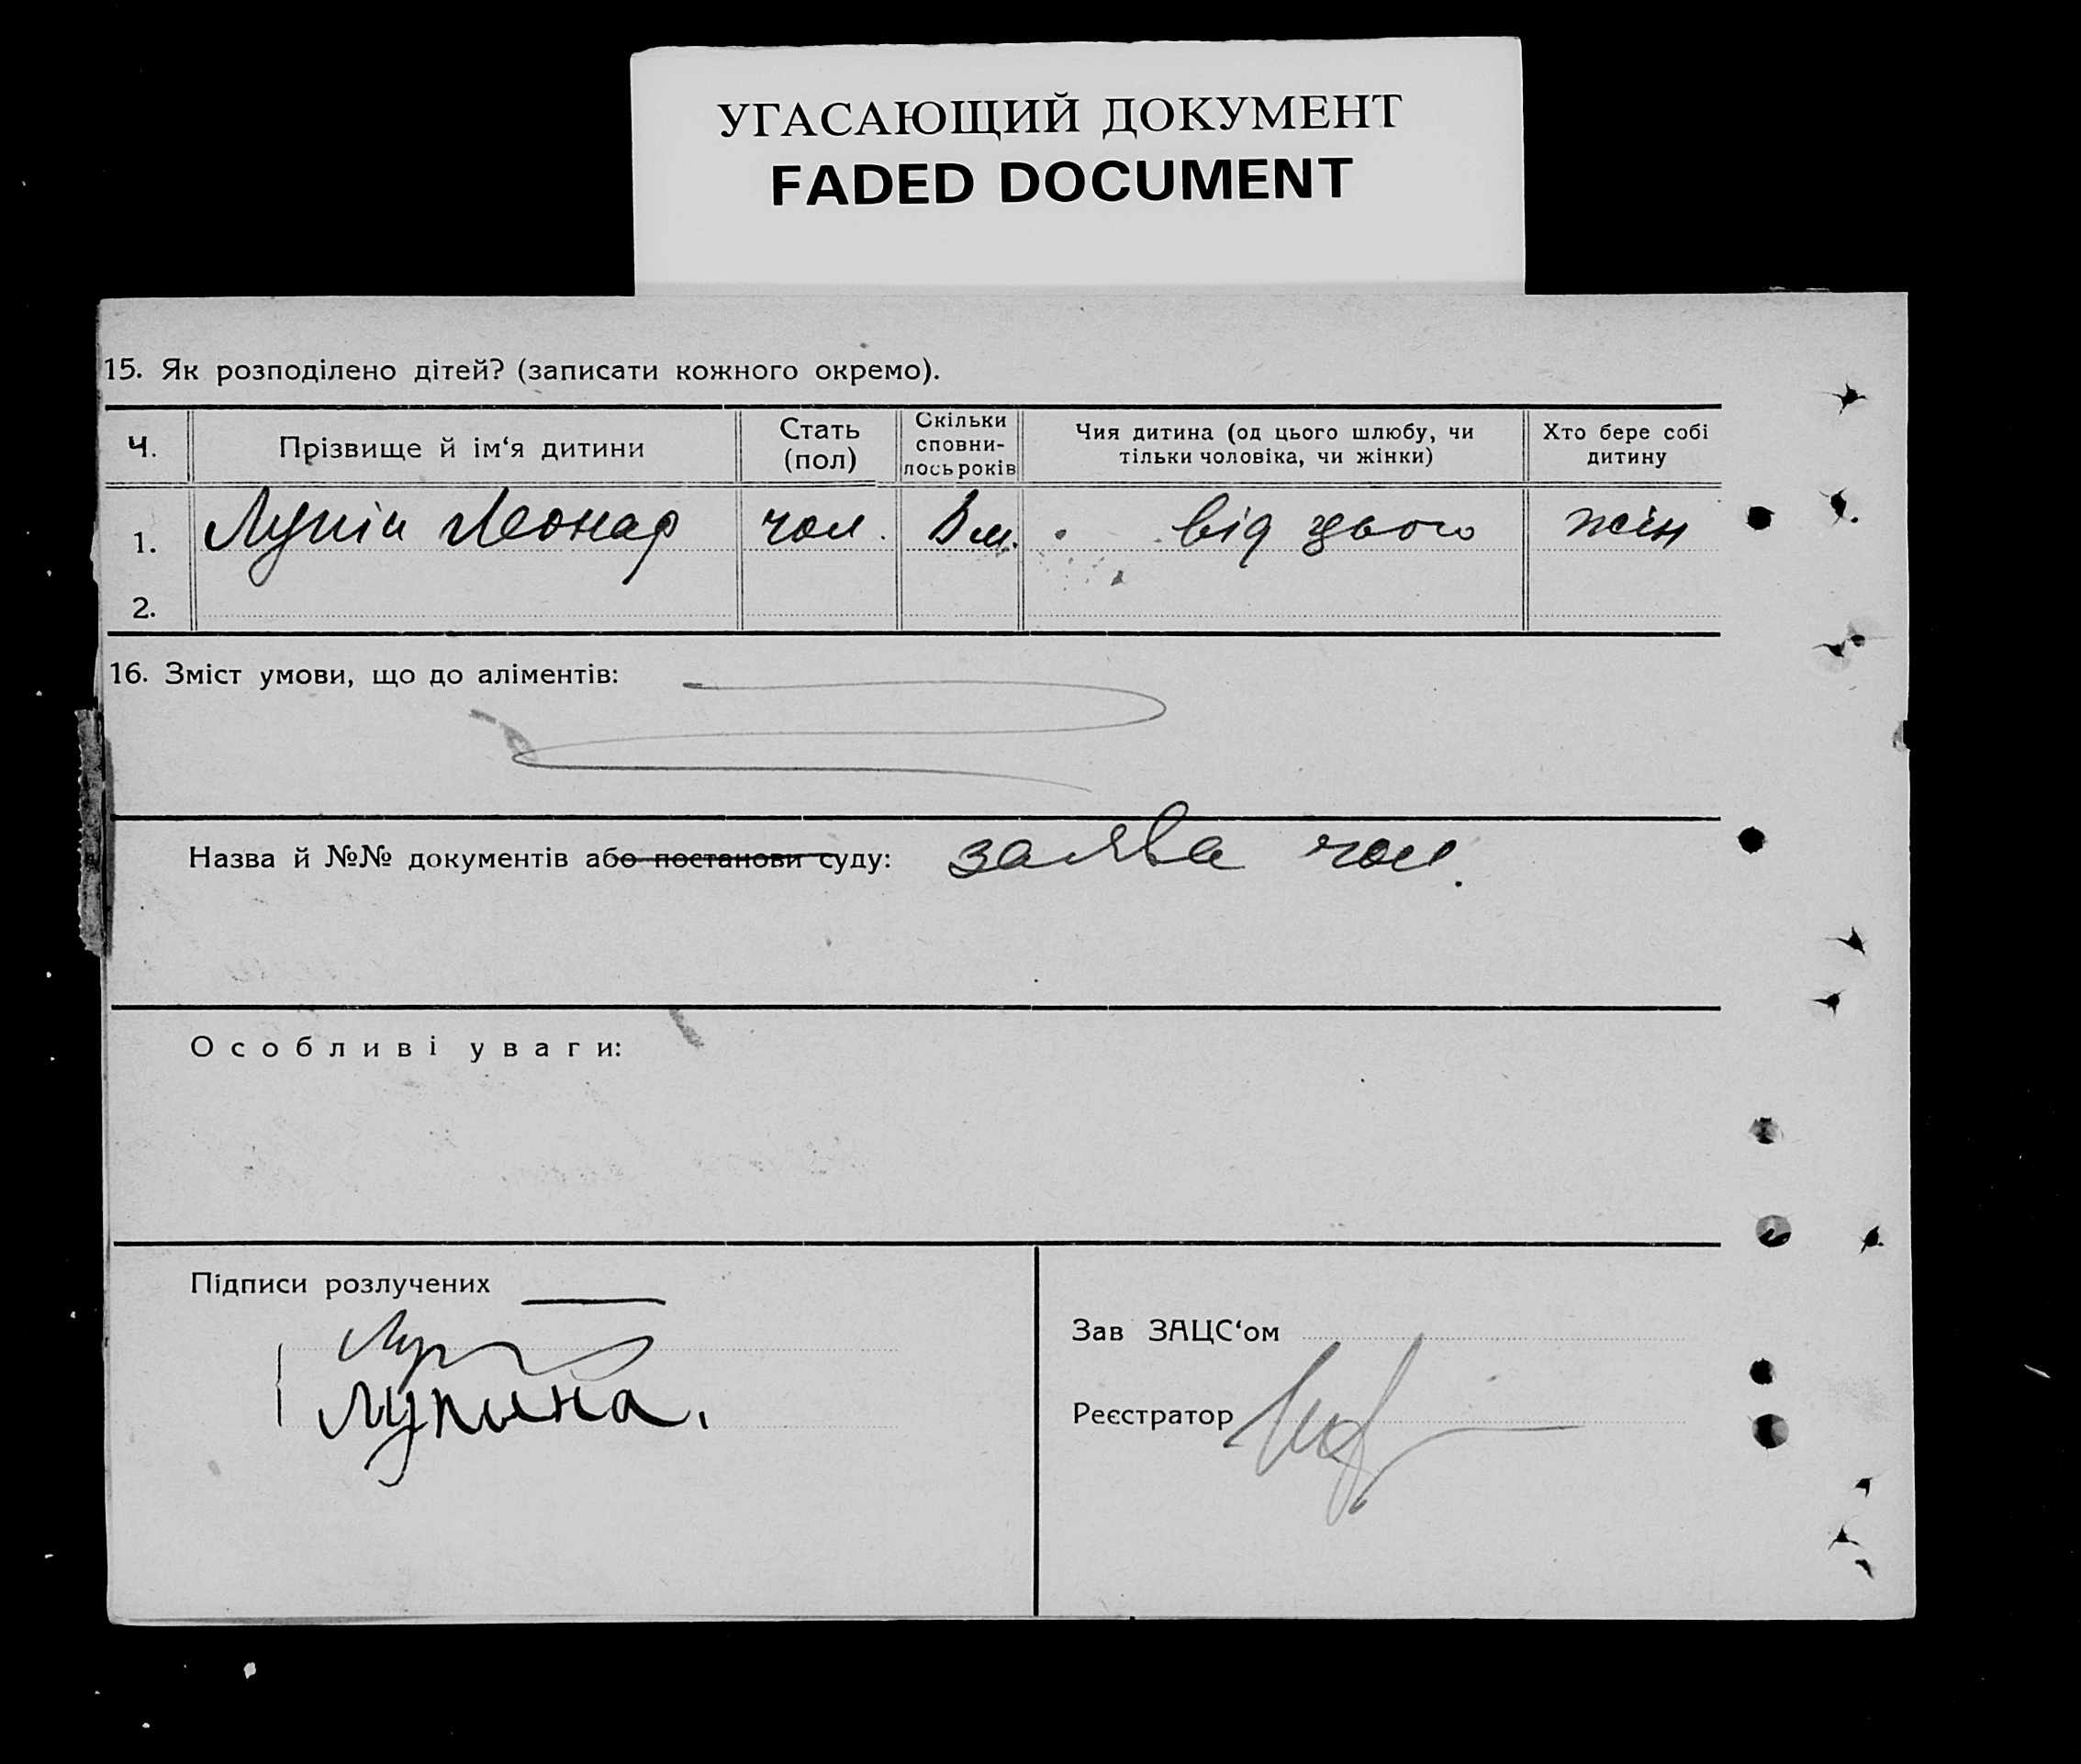 УГАСАЮЩИЙ ДОКУМЕНТ
FADED DOCUMENT
15. Як розподілено дітей? (записати кожного окремо).
Ч.
Прізвище й ім‘я дитини
Стать
(пол)
Скільки
сповни-
лось років
Чия дитина (од цього шлюбу, чи
тільки чоловіка, чи жінки)
Хто бере собі
дитину
1. Лупін Леонар чол. м. від цього жін
2.
16. Зміст умови, що до аліментів:
Назва й №№ документів або постанови суду: заява чол.
Особливі уваги:
Підписи розлучених
Лупина.
Зав ЗАЦС‘ом
Реєстратор